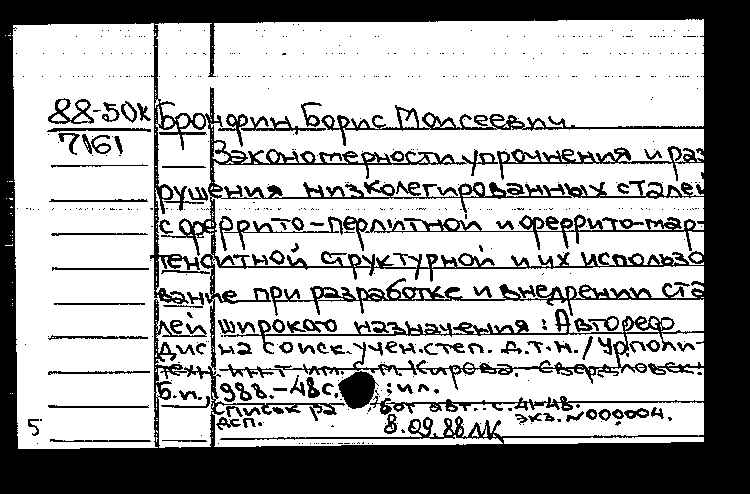 88-50к Бронфин, Борис Моисеевич.
7161 Закономерности упрочнения и раз
рушения низколегированных сталей
с феррито-перлитной и феррито-мар-
тенситной структурной и их использо
вание при разработке и внедрении ста
лей широкого назначения : Автореф
дис на соиск. учен. степ. д.т.н. / Ур. поли
техн. ин-т им. С.М. Кирова. - Свердловск:
Б.и., 1988. - 48с. : ил.
Список работ авт.: с. 41-48.
ДСП. экз. N000004.
5 8.09.88